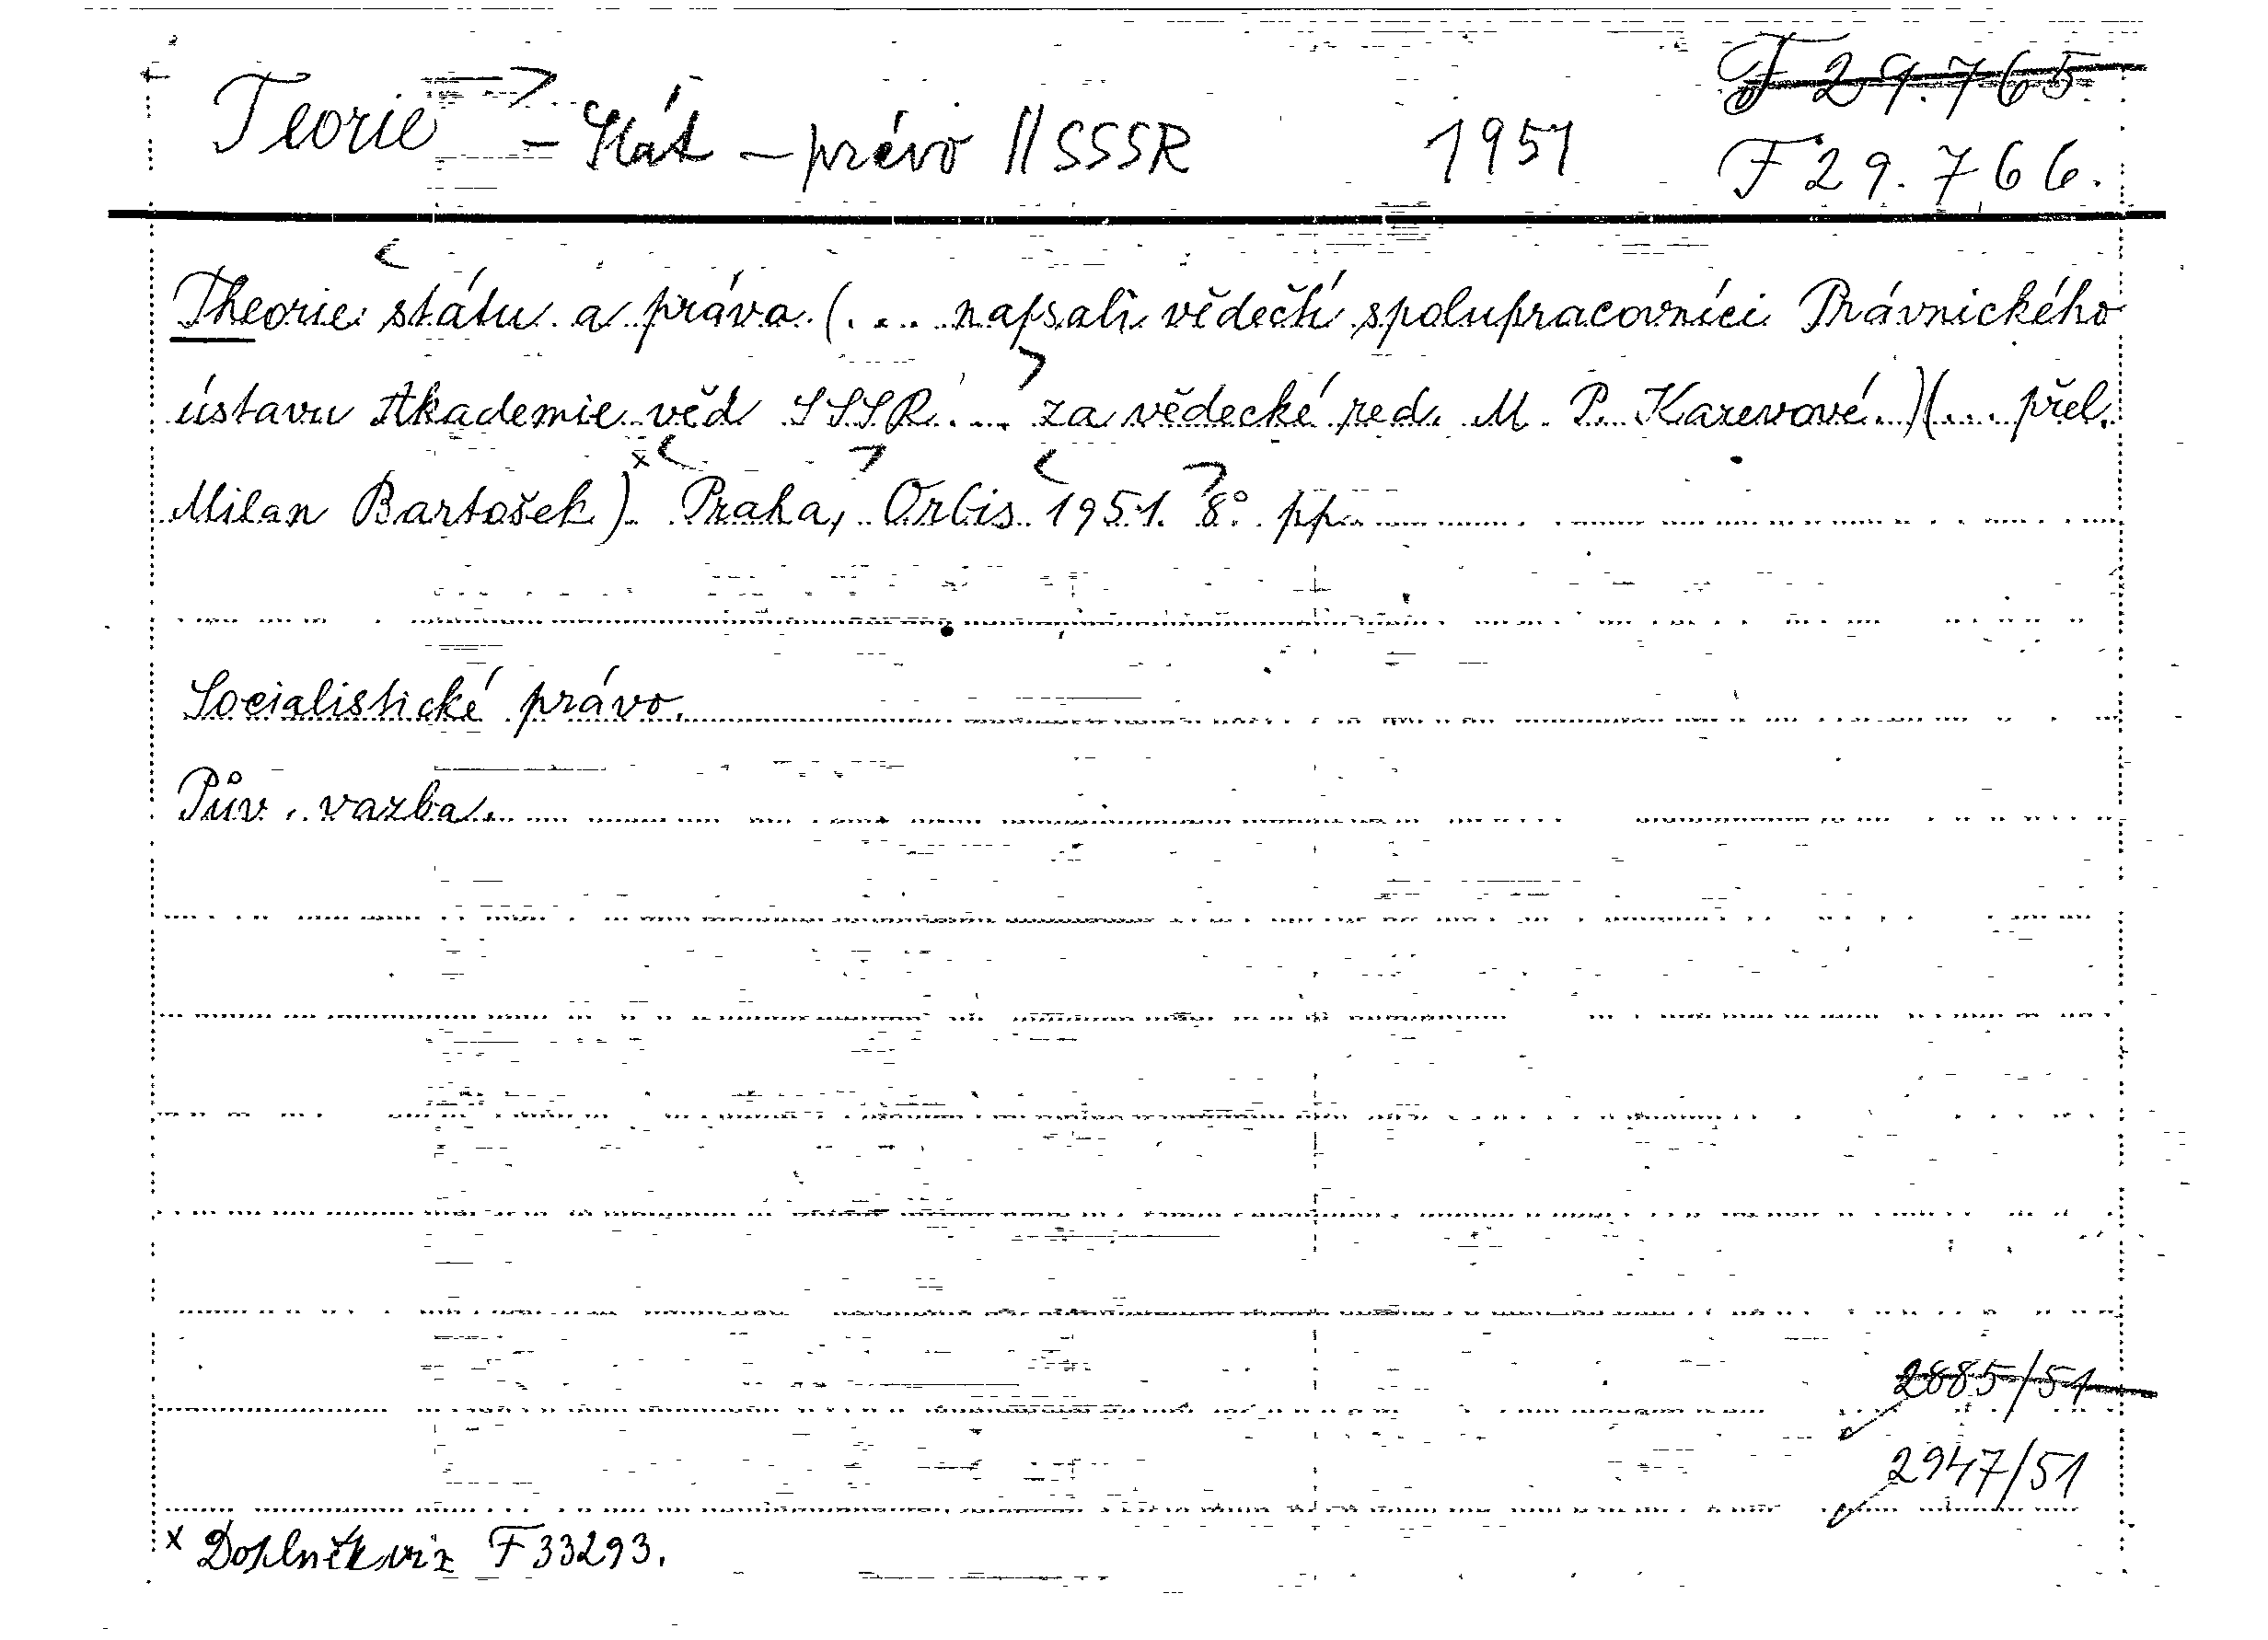 Teorie – Stát – právo || SSSR 1951 F 29.765.
F 29.766.
Theorie státu a práva. (. ... napsali vědečtí spolupracovníci Právnického
ústavu Akademie věd SSSR. ... za vědecké red. M. P. Karevové.)(... přel.
Milan Bartošek)x Praha, Orbis 1951. 8°. pp.
Socialistické právo.
Pův. vazba.
2885/51
2947/51
x Doplněk viz F 33293.